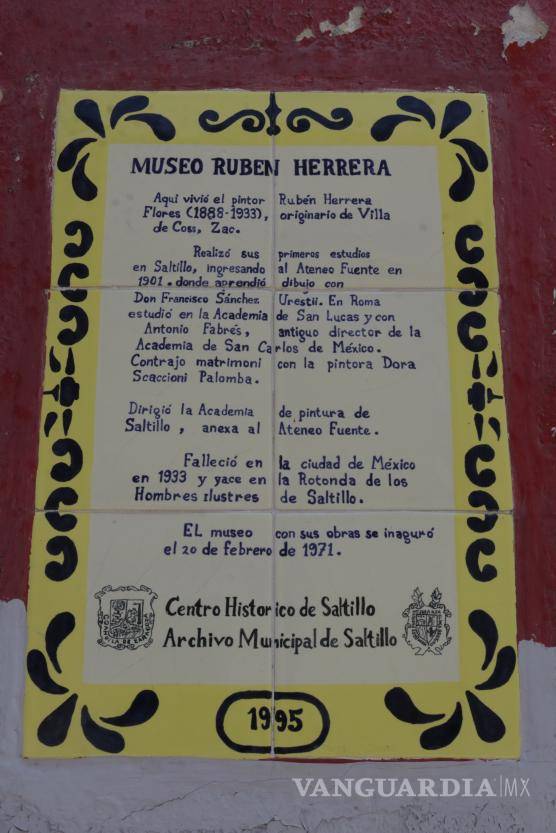 MUSEO RUBEN HERRERA
Aqui vivió el pintor Rubén Herrera
Flores (1888-1933), originario de Villa
de Coss, Zac.
Realizó sus primeros estudios
en Saltillo, ingresando al Ateneo Fuente en
1901. donde aprendió dibujo con
Don Francisco Sánchez Urestii. En Roma
estudió en la Academia de San Lucas y con
Antonio Fabrés, antiguo director de la
Academia de San Carlos de México.
Contrajo matrimoni con la pintora Dora
Scaccioni Palomba.
Dirigió la Academia de pintura de
Saltillo, anexa al Ateneo Fuente.
Falleció en la ciudad de México
en 1933 y yace en la Rotonda de los
Hombres ilustres de Saltillo.
EL museo con sus obras se inaguró
el 20 de febrero de 1971.
Centro Historico de Saltillo
Archivo Municipal de Saltillo
1995
VANGUARDIA|MX